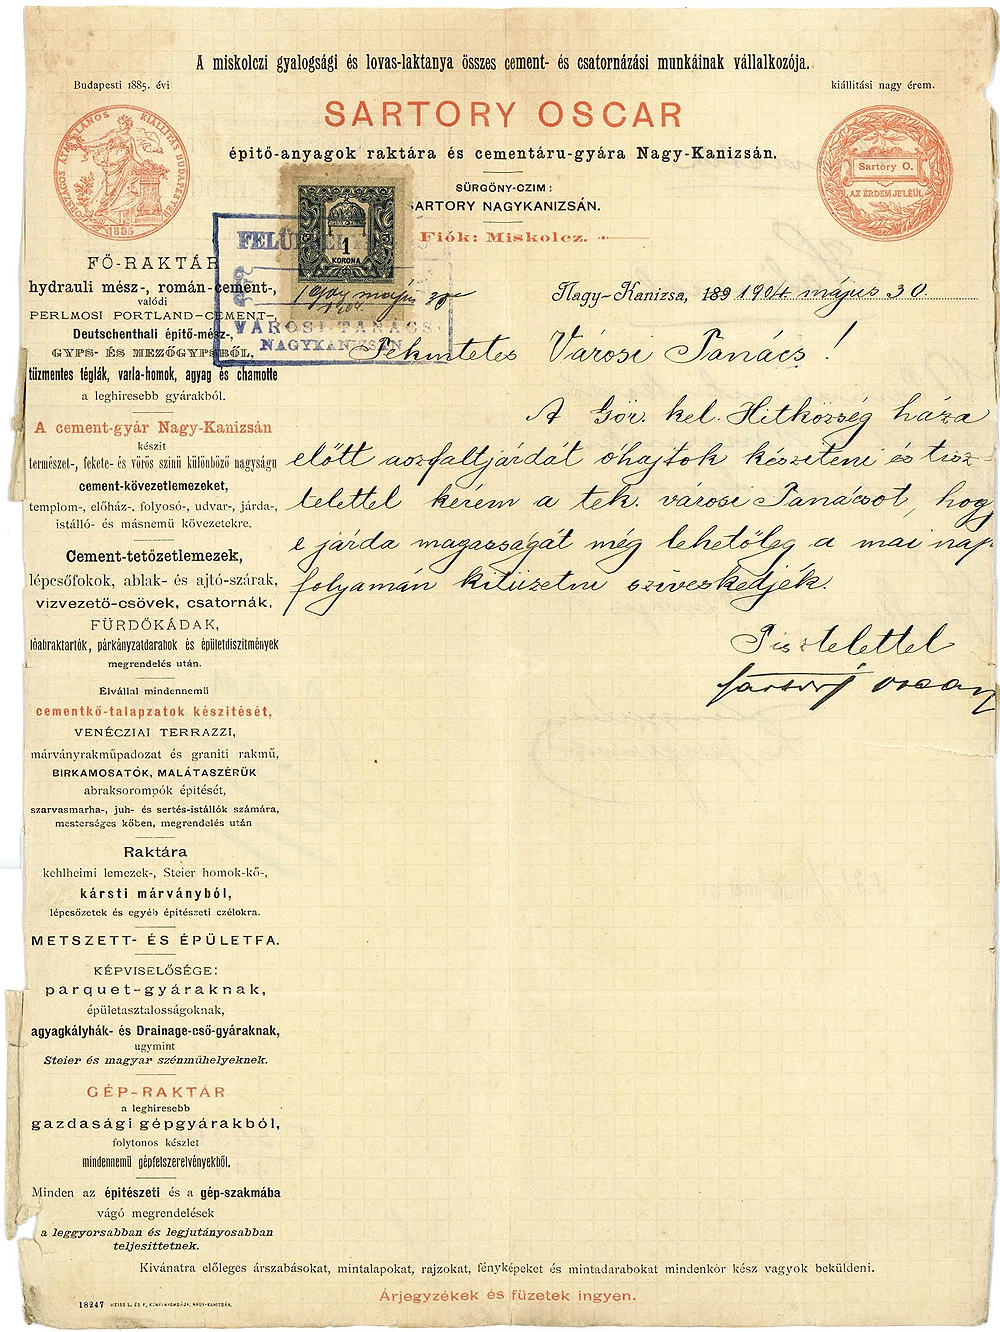 A miskolczi gyalogsági és lovas-laktanya összes cement- és csatornázási munkáinak vállalkozója.
Budapesti 1885. évi
kiállitási nagy érem.
SARTORY OSCAR
épitő-anyagok raktára és cementáru-gyára Nagy-Kanizsán.
ORSZÁGOS ÁLTALÁNOS KIÁLLITÁS BUDAPESTEN
1885
Sartory O.
AZ ÉRDEM JELÉÜL
SÜRGÖNY-CZIM:
SARTORY NAGYKANIZSÁN.
Fiók: Miskolcz.
1
KORONA
1904 május 30
VÁROSI TANÁCS
NAGYKANIZSÁN
Nagy-Kanizsa, 189 1904 május 30.
Tekintetes Városi Tanács!
A Gör. kel. Hitközség háza
előtt aszfaltjárdát óhajtok készíteni és tisz-
telettel kérem a tek. városi Tanácsot, hogy
e járda magasságát még lehetőleg a mai nap
folyamán kitüzetni sziveskedjék.
Tisztelettel
Sartory Oscar
FŐ-RAKTÁR
hydrauli mész-, román-cement-,
valódi
PERLMOSI PORTLAND-CEMENT-,
Deutschenthali épitő-mész-,
GYPS- ÉS MEZŐGYPSBŐL,
tüzmentes téglák, varla-homok, agyag és chamotte
a leghiresebb gyárakból.
A cement-gyár Nagy-Kanizsán
készit
természet-, fekete- és vörös szinü különböző nagyságu
cement-kövezetlemezeket,
templom-, előház-, folyosó-, udvar-, járda-,
istálló- és másnemü kövezetekre.
Cement-tetőzetlemezek,
lépcsőfokok, ablak- és ajtó-szárak,
vizvezető-csövek, csatornák,
FÜRDŐKÁDAK,
lóabraktartók, párkányzatdarabok és épületdiszitmények
megrendelés után.
Elvállal mindennemü
cementkő-talapzatok készitését,
VENÉCZIAI TERRAZZI,
márványrakmüpadozat és graniti rakmü,
BIRKAMOSATÓK, MALÁTASZÉRÜK
abraksorompók épitését,
szarvasmarha-, juh- és sertés-istállók számára,
mesterséges kőben, megrendelés után
Raktára
kehlheimi lemezek-, Steier homok-kő-,
kársti márványból,
lépcsőzetek és egyéb épitészeti czélokra.
METSZETT- ÉS ÉPÜLETFA.
KÉPVISELŐSÉGE:
parquet-gyáraknak,
épületasztalosságoknak,
agyagkályhák- és Drainage-cső-gyáraknak,
ugymint
Steier és magyar szénmühelyeknek.
GÉP-RAKTÁR
a leghiresebb
gazdasági gépgyárakból,
folytonos készlet
mindennemü gépfelszerelvényekből.
Minden az épitészeti és a gép-szakmába
vágó megrendelések
a leggyorsabban és legjutányosabban
teljesittetnek.
Kivánatra előleges árszabásokat, mintalapokat, rajzokat, fényképeket és mintadarabokat mindenkor kész vagyok beküldeni.
Árjegyzékek és füzetek ingyen.
18247 WEISS L. ÉS F. KÖNYVNYOMDÁJA, NAGY-KANIZSÁN.